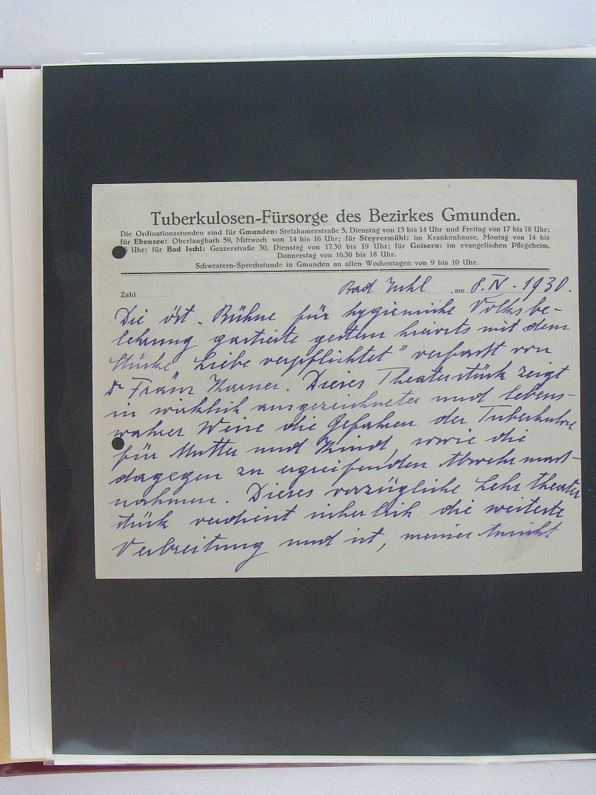 Tuberkulosen-Fürsorge des Bezirkes Gmunden.
Die Ordinationsstunden sind für Gmunden: Stelzhamerstraße 5, Dienstag von 13 bis 14 Uhr und Freitag von 17 bis 18 Uhr;
für Ebensee: Oberlangbath 59, Mittwoch von 14 bis 16 Uhr; für Steyrermühl: im Krankenhause, Montag von 14 bis
Uhr; für Bad Ischl: Grazerstraße 30, Dienstag von 17.30 bis 19 Uhr; für Goisern: im evangelischen Pflegeheim,
Donnerstag von 16.30 bis 18 Uhr.
Schwestern-Sprechstunde in Gmunden an allen Wochentagen von 9 bis 10 Uhr.
Zahl Bad Ischl, am 8. IV. 1930.
Die öst. Bühne für hygienische Volksbe-
lehrung gastierte gestern hierorts mit dem
Stücke „Liebe verpflichtet" verfasst von
Dr Franz Karner. Dieses Theaterstück zeigt
in wirklich ausgezeichneter und lebens-
wahrer Weise die Gefahren der Tuberkulose
für Mutter und Kind, sowie die
dagegen zu ergreifenden Abwehrmass-
nahmen. Dieses vorzügliche Lehrtheater
stück verdient sicherlich die weiteste
Verbreitung und ist, meiner Ansicht